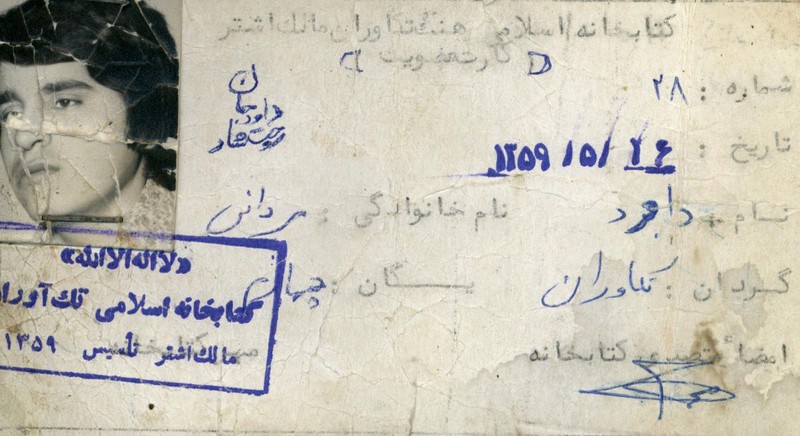 کتابخانه اسلامی هنگ تکاوران مالک اشتر
« کارت عضویت »
شماره : ۲۸
تاریخ : ۲۶ / ۵ / ۱۳۵۹
نام : نام خانوادگی : مردانی
گردان : تکاوران یگان :
امضاء متصدی کتابخانه
«لا اله الا الله»
کتابخانه اسلامی تک آوران
مالک اشتر تأسیس ۱۳۵۹